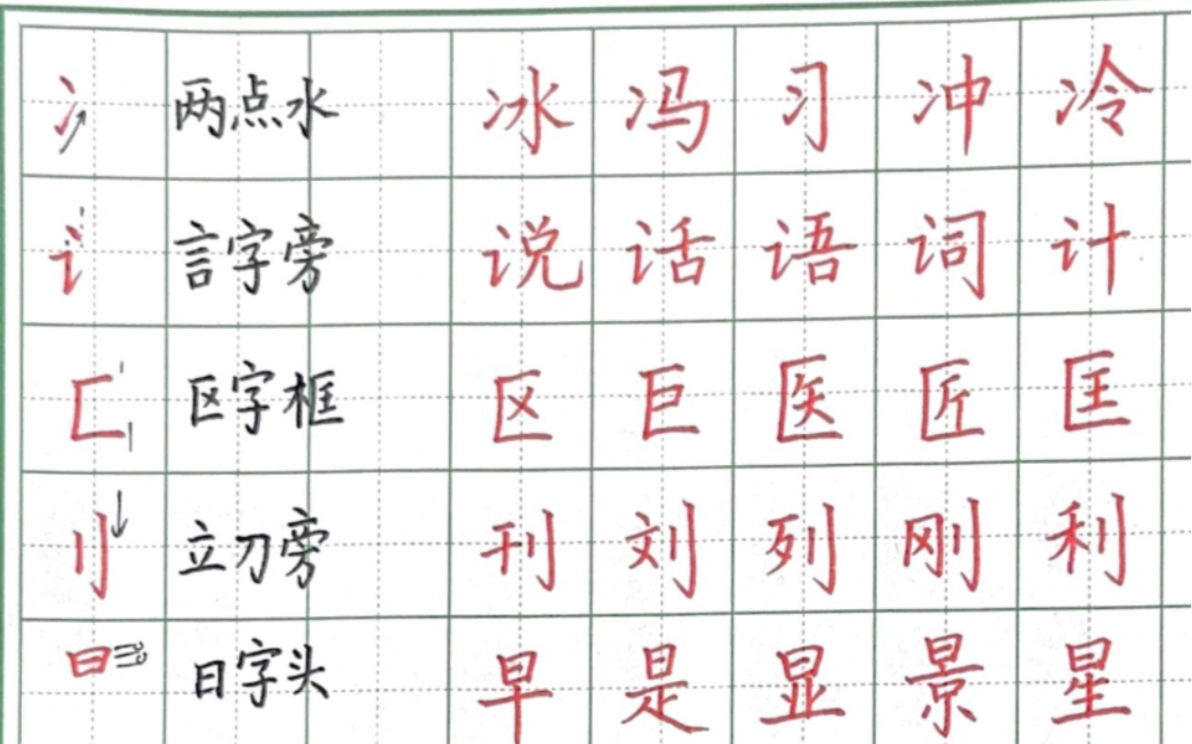 冫 两点水 冰 冯 习 冲 冷
讠 言字旁 说 话 语 词 计
匚 区字框 区 巨 医 匠 匡
刂 立刀旁 刊 刘 列 刚 利
日 日字头 早 是 显 景 星